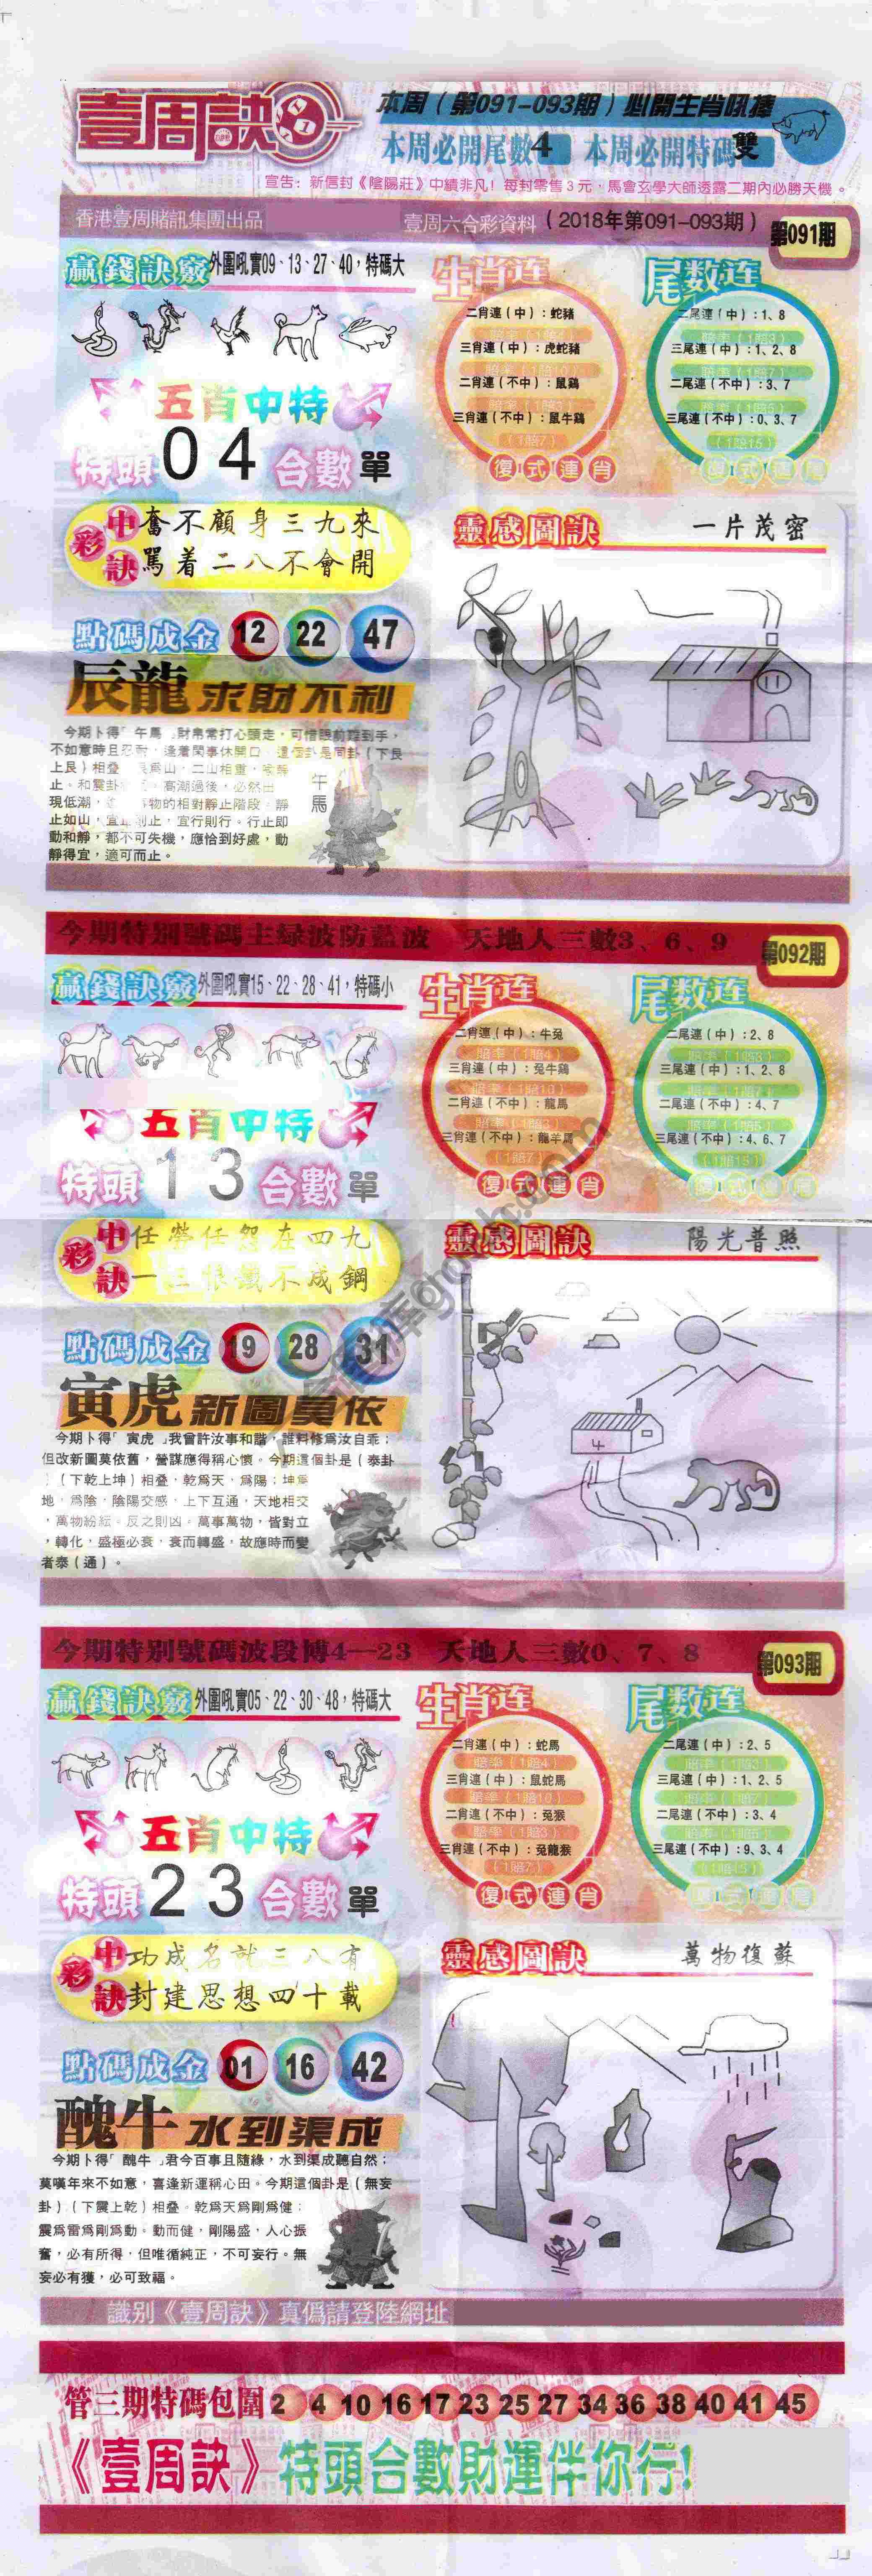 壹周訣
本周（第091-093期）必開生肖吼捧
本周必開尾數4 本周必開特碼雙
宣告：新信封《陰陽莊》中績非凡！每封零售3元，馬會玄學大師透露二期內必勝天機。
香港壹周賭訊集團出品
壹周六合彩資料（2018年第091-093期）
第091期
贏錢訣竅
外圍吼實09、13、27、40，特碼大
五肖中特
特頭04合數單
生肖连
二肖連（中）：蛇豬
三肖連（中）：虎蛇豬
二肖連（不中）：鼠鷄
三肖連（不中）：鼠牛鷄
（1賠7）
復式連肖
尾数连
二尾連（中）：1、8
三尾連（中）：1、2、8
二尾連（不中）：3、7
三尾連（不中）：0、3、7
（1賠15）
中彩訣
奮不顧身三九來
罵着二八不會開
點碼成金 12 22 47
靈感圖訣 一片茂密
辰龍求財不利
今期卜得「午馬」財帛常打心頭走，可惜眼前難到手，
不如意時且忍耐，逢着閑事休開口，這個卦是同卦（下艮
止。和震卦
高潮過後，必然出
現低潮，
物的相對靜止階段。靜
止如山，宜止則止，宜行則行。行止即
動和靜，都不可失機，應恰到好處，動
靜得宜，適可而止。
午馬
今期特別號碼主緑波防藍波 天地人三數3、6、9
第092期
贏錢訣竅
外圍吼實15、22、28、41，特碼小
五肖中特
特頭13合數單
生肖连
二肖連（中）：牛兔
賠率（1賠4）
三肖連（中）：兔牛鷄
賠率（1賠10）
二肖連（不中）：龍馬
賠率（1賠3）
三肖連（不中）：龍羊馬
（1賠7）
復式連肖
尾数连
二尾連（中）：2、8
三尾連（中）：1、2、8
二尾連（不中）：4、7
三尾連（不中）：4、6、7
（1賠15）
中彩訣
任勞任怨在四九
不成鋼
點碼成金 19 28 31
靈感圖訣 陽光普照
4
寅虎新圖莫依
今期卜得「寅虎」我曾許汝事和諧，誰料修爲汝自乖；
但改新圖莫依舊，營謀應得稱心懷。今期這個卦是（泰卦
）（下乾上坤）相叠，乾爲天，爲陽；坤爲
地，爲陰，陰陽交感，上下互通，天地相交
，萬物紛紜。反之則凶。萬事萬物，皆對立
，轉化，盛極必衰，衰而轉盛，故應時而變
者泰（通）。
今期特別號碼波段博4—23 天地人三數0、7、8
第093期
贏錢訣竅
外圍吼實05、22、30、48，特碼大
五肖中特
特頭23合數單
生肖连
二肖連（中）：蛇馬
賠率（1賠4）
三肖連（中）：鼠蛇馬
賠率（1賠10）
二肖連（不中）：兔猴
賠率（1賠3）
三肖連（不中）：兔龍猴
（1賠7）
復式連肖
尾数连
二尾連（中）：2、5
三尾連（中）：1、2、5
二尾連（不中）：3、4
三尾連（不中）：9、3、4
（1賠15）
中彩訣
功成名就三八有
封建思想四十載
點碼成金 01 16 42
靈感圖訣 萬物復蘇
醜牛水到渠成
今期卜得「醜牛」君今百事且隨緣，水到渠成聽自然；
莫嘆年來不如意，喜逢新運稱心田。今期這個卦是（無妄
卦）（下震上乾）相叠。乾爲天爲剛爲健；
震爲雷爲剛爲動。動而健，剛陽盛，人心振
奮，必有所得，但唯循純正，不可妄行。無
妄必有獲，必可致福。
識別《壹周訣》真僞請登陸網址
管三期特碼包圍 2 4 10 16 17 23 25 27 34 36 38 40 41 45
《壹周訣》特頭合數財運伴你行！